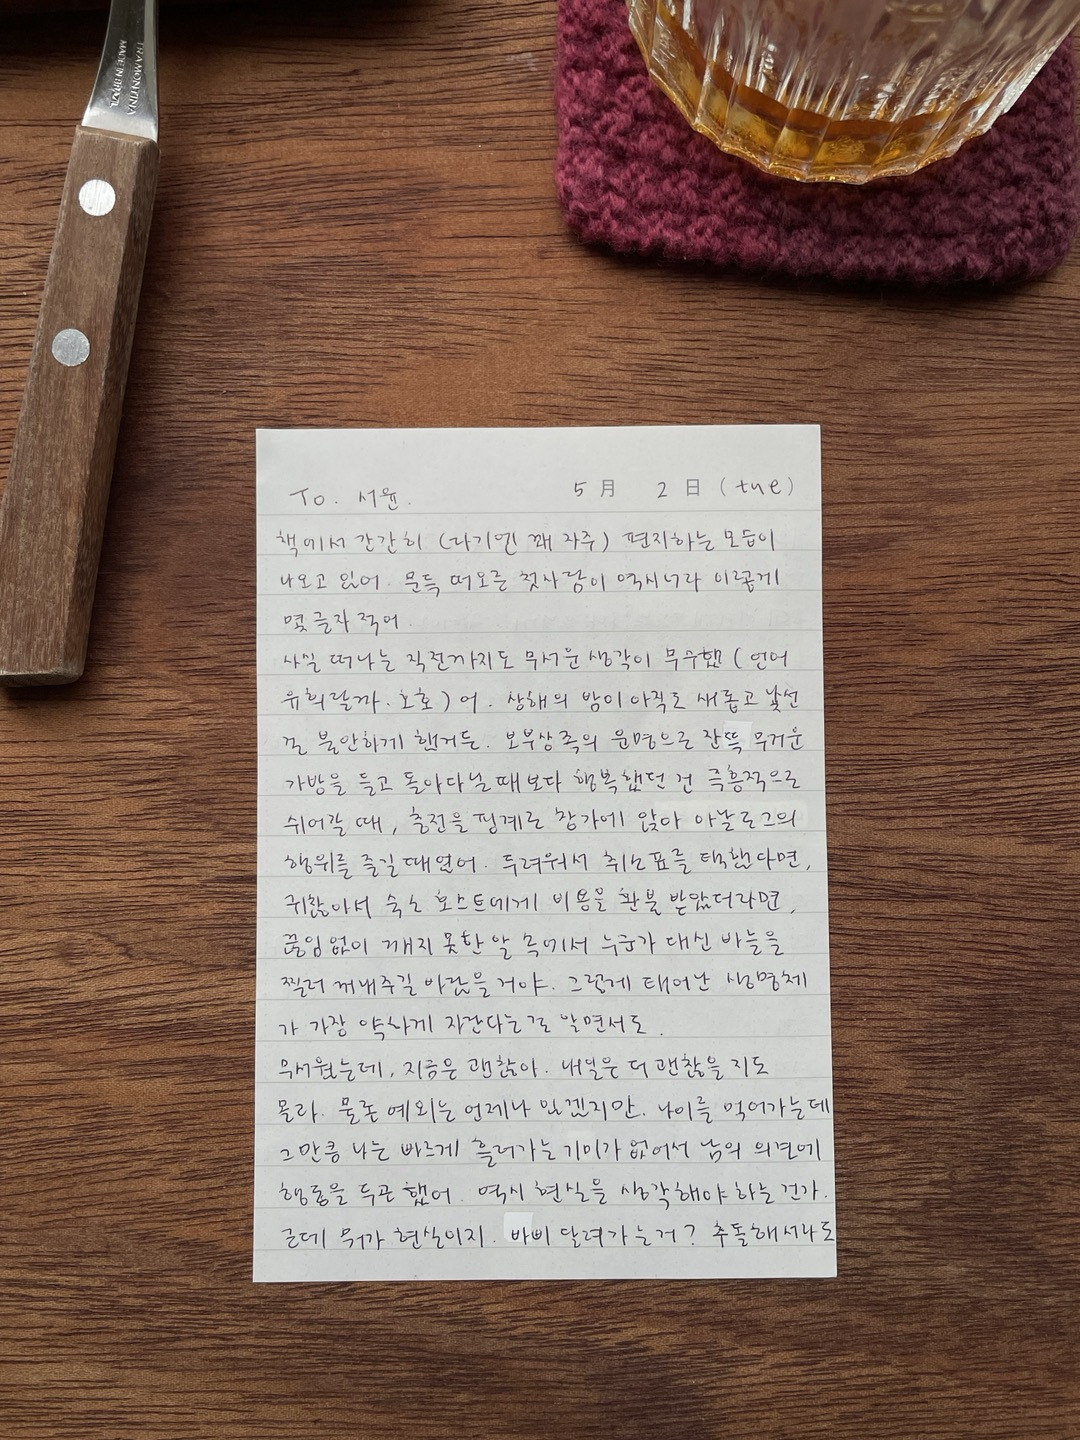 TRAMONTINA
MADE IN BRAZIL
To. 서윤.
5 月 2 日 (tue)
책에서 간간히 (라기엔 꽤 자주) 편지하는 모습이
나오고 있어. 문득 떠오른 첫사람이 역시너라 이렇게
몇 글자 적어.
사실 떠나는 직전까지도 무서운 생각이 무수했 (언어
유희랄까. 호호) 어. 상해의 밤이 아직도 새롭고 낯선
걸 불안하게 했거든. 보부상족의 운명으로 잔뜩 무거운
가방을 들고 돌아다닐 때보다 행복했던 건 즉흥적으로
쉬어갈 때, 충전을 핑계로 창가에 앉아 아날로그의
행위를 즐길 때였어. 두려워서 취소표를 택했다면,
귀찮아서 숙소 호스트에게 비용을 환불 받았더라면,
끊임없이 깨지 못한 알 속에서 누군가 대신 바늘을
찔러 꺼내주길 바랐을 거야. 그렇게 태어난 생명체
가 가장 약하게 자란다는걸 알면서도.
무서웠는데, 지금은 괜찮아. 내일은 더 괜찮을 지도
몰라. 물론 예외는 언제나 있겠지만. 나이를 먹어가는데
그만큼 나는 빠르게 흘러가는 기미가 없어서 남의 의견에
행동을 두곤 했어. 역시 현실을 생각해야 하는 건가.
근데 뭐가 현실이지. 바삐 달려가는거? 추돌해서라도